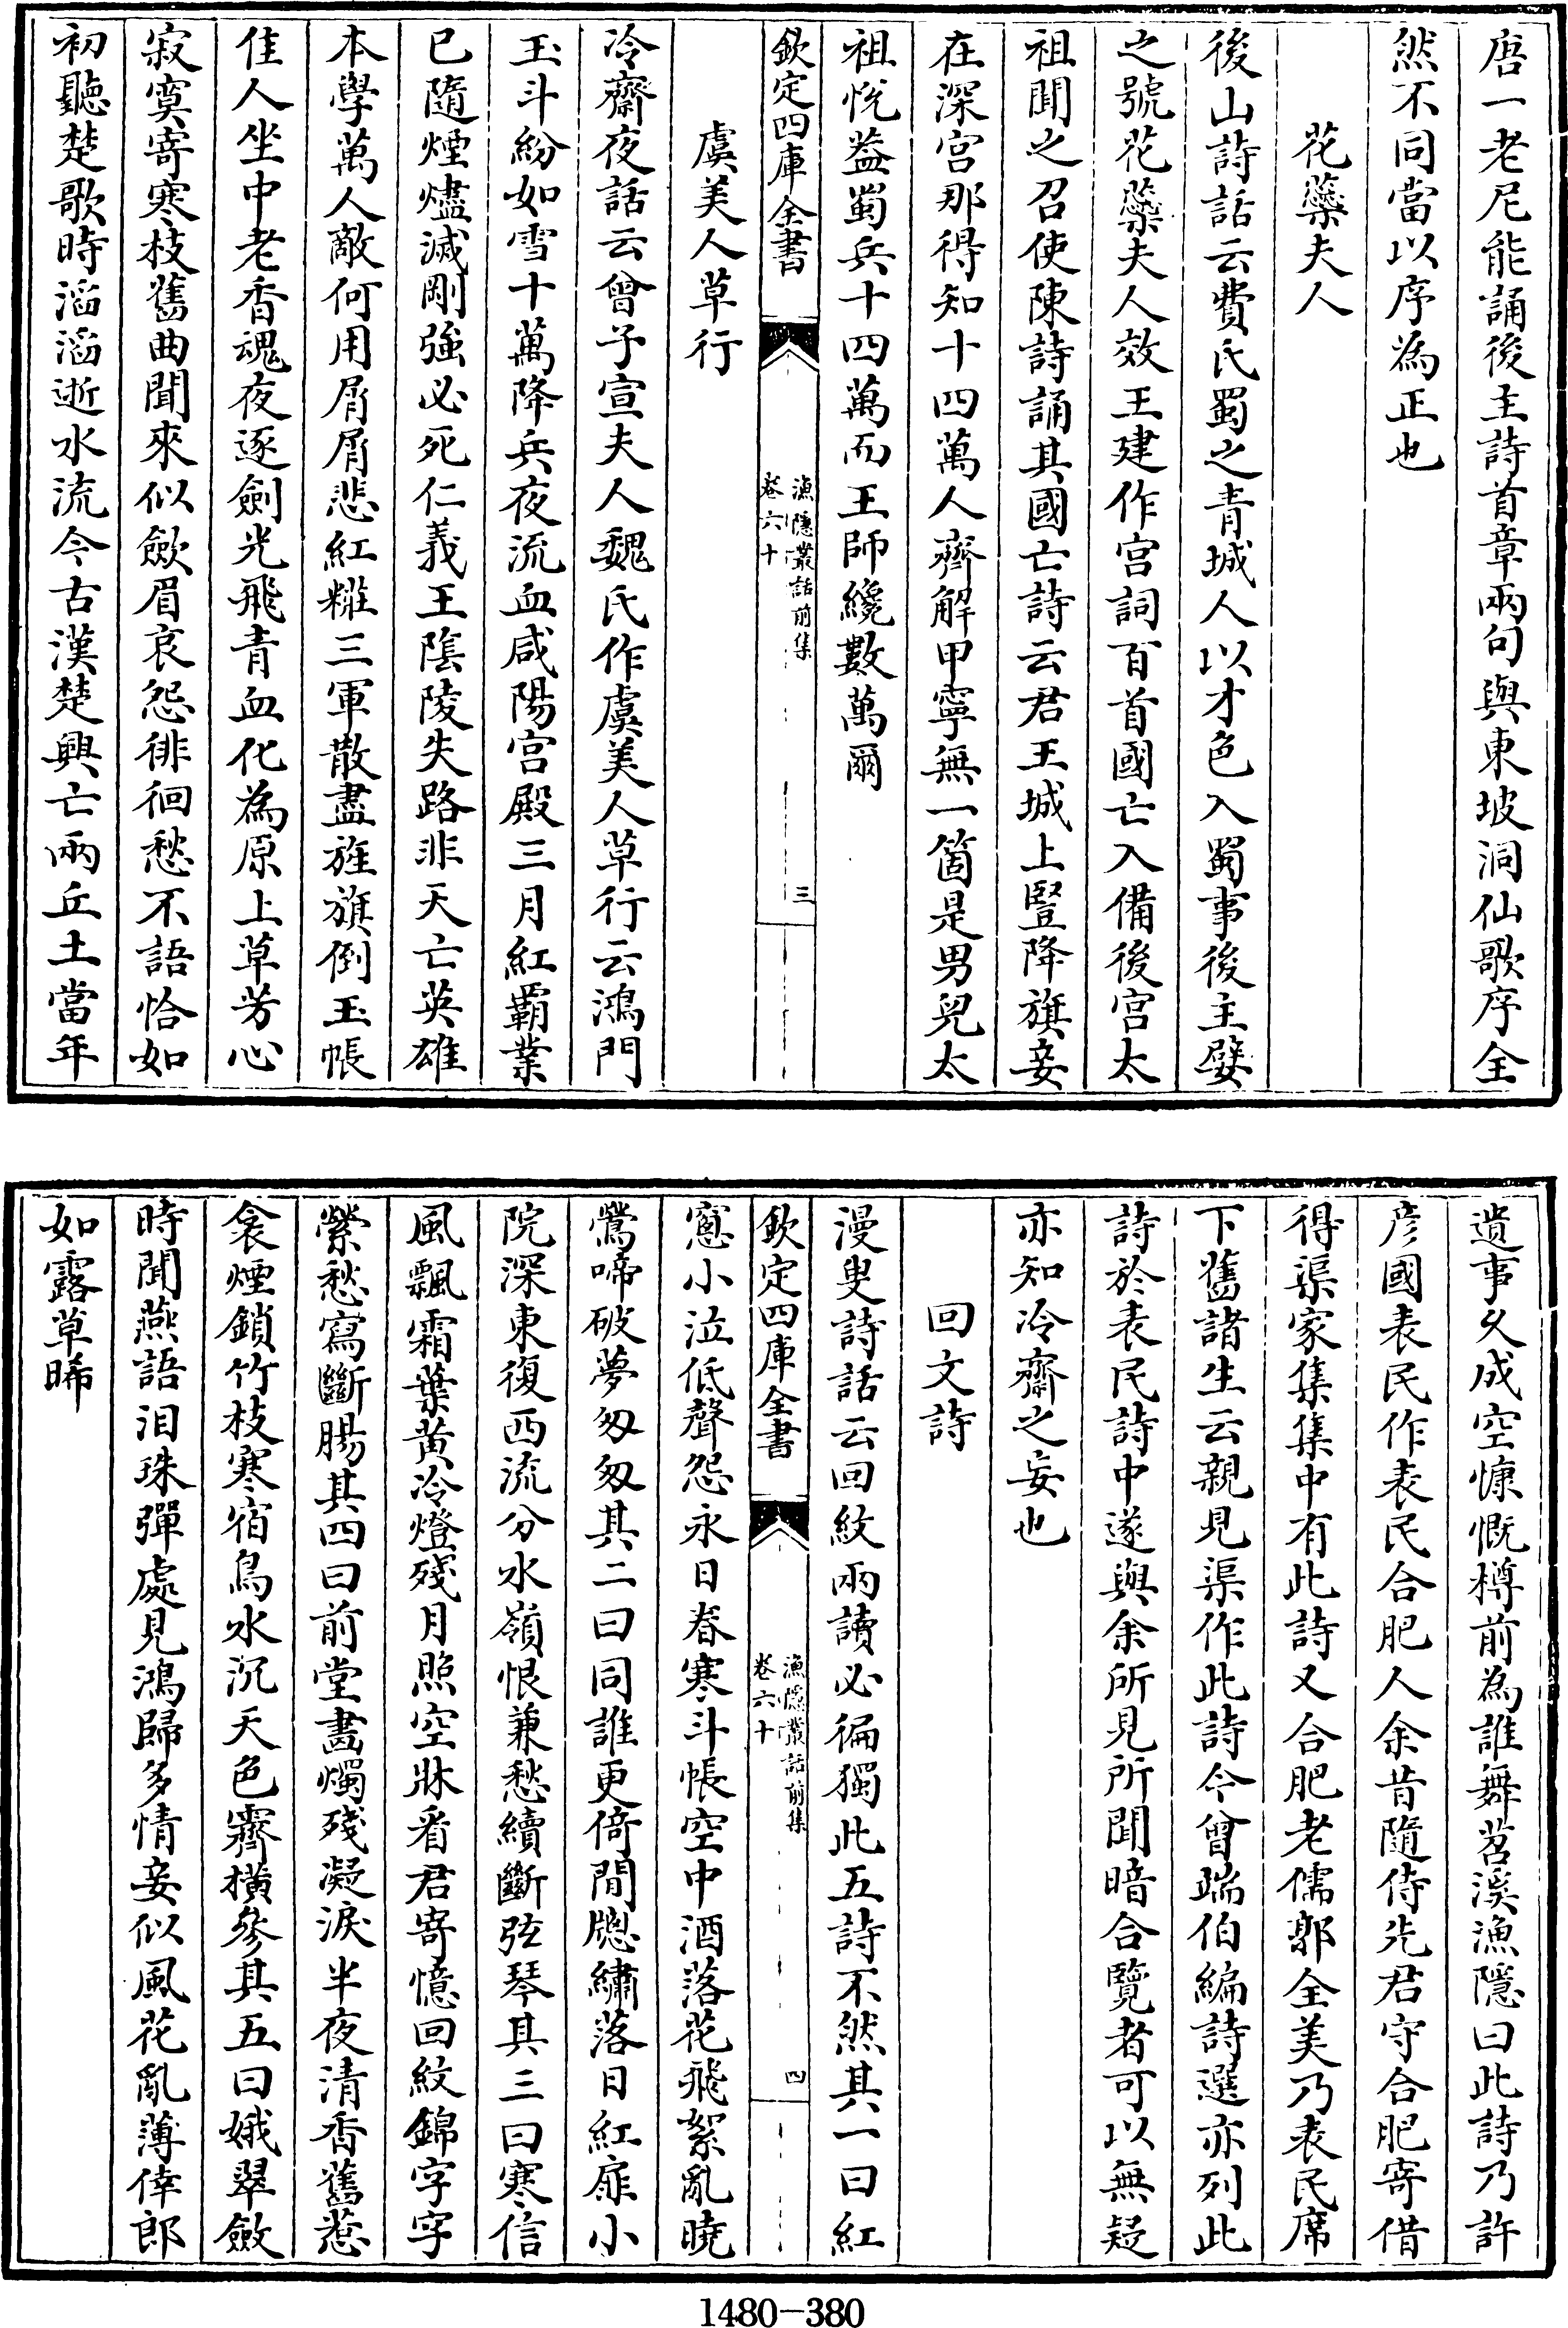 唐一老尼能誦後主詩首章兩句與東坡洞仙歌序全
然不同當以序為正也
花蘂夫人
後山詩話云費氏蜀之青城人以才色入蜀事後主嬖
之號花蘂夫人效王建作宮詞百首國亡入備後宮太
祖聞之召使陳詩誦其國亡詩云君王城上豎降旗妾
在深宮那得知十四萬人齊解甲寧無一箇是男兒太
祖悅葢蜀兵十四萬而王師纔數萬爾
欽定四庫全書
漁隱叢話前集
卷六十
三
虞美人草行
冷齋夜話云曾子宣夫人魏氏作虞美人草行云鴻門
玉斗紛如雪十萬降兵夜流血咸陽宮殿三月紅霸業
已隨煙燼滅剛強必死仁義王陰陵失路非天亡英雄
本學萬人敵何用屑屑悲紅糚三軍散盡旌旗倒玉帳
佳人坐中老香魂夜逐劍光飛青血化為原上草芳心
寂寞寄寒枝舊曲聞來似歛眉哀怨徘徊愁不語恰如
初聽楚歌時滔滔逝水流今古漢楚興亡兩丘土當年
遺事久成空慷慨樽前為誰舞苕溪漁隱曰此詩乃許
彦國表民作表民合肥人余昔隨侍先君守合肥寄借
得渠家集集中有此詩又合肥老儒郭全美乃表民席
下舊諸生云親見渠作此詩今曾端伯編詩選亦列此
詩於表民詩中遂與余所見所聞暗合覽者可以無疑
亦知冷齋之妄也
回文詩
漫叟詩話云回紋兩讀必徧獨此五詩不然其一曰紅
欽定四庫全書
漁隱叢話前集
卷六十
四
窻小泣低聲怨永日春寒斗帳空中酒落花飛絮亂曉
鶯啼破夢匆匆其二曰同誰更倚閒牕繡落日紅扉小
院深東復西流分水嶺恨兼愁續斷弦琴其三曰寒信
風飄霜葉黄冷燈殘月照空牀看君寄憶回紋錦字字
縈愁寫斷腸其四曰前堂畵燭殘凝淚半夜清香舊惹
衾煙鎖竹枝寒宿鳥水沉天色霽橫參其五曰娥翠斂
時聞燕語泪珠彈處見鴻歸多情妾似風花亂薄倖郎
如露草晞
1480-380